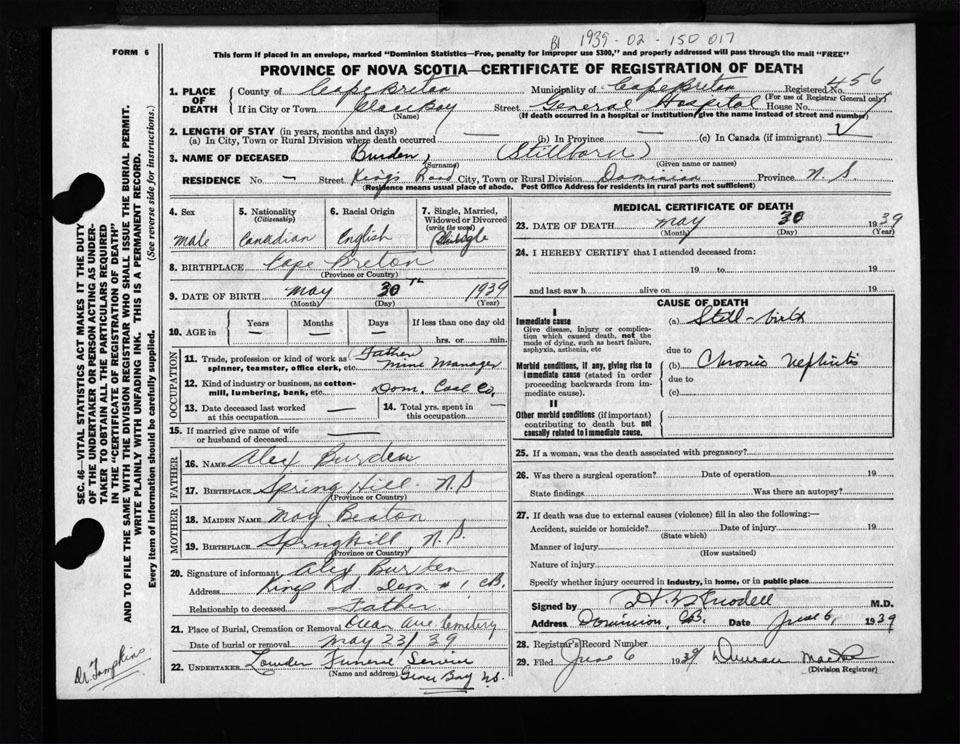 B1 1939-02-150 017
FORM 6
This form if placed in an envelope, marked "Dominion Statistics—Free, penalty for improper use $300," and properly addressed will pass through the mail "FREE"
PROVINCE OF NOVA SCOTIA—CERTIFICATE OF REGISTRATION OF DEATH
1. PLACE OF DEATH County of Cape Breton Municipality of Cape Breton Registered No. 456
(For use of Registrar General only)
If in City or Town Glace Bay Street General Hospital House No.
(Name) (If death occurred in a hospital or institution, give the name instead of street and number)
2. LENGTH OF STAY (in years, months and days)
(a) In City, Town or Rural Division where death occurred — (b) In Province — (c) In Canada (if immigrant)
3. NAME OF DECEASED Burden, (Stillborn)
(Surname) (Given name or names)
RESIDENCE No. — Street King's Road City, Town or Rural Division Dominion Province N. S.
(Residence means usual place of abode. Post Office Address for residents in rural parts not sufficient)
4. Sex Male
5. Nationality (Citizenship) Canadian
6. Racial Origin English
7. Single, Married, Widowed or Divorced (write the word) Single
8. BIRTHPLACE Cape Breton
(Province or Country)
9. DATE OF BIRTH May 30th 1939
(Month) (Day) (Year)
10. AGE in Years Months Days If less than one day old
— — — hrs. or min.
OCCUPATION
11. Trade, profession or kind of work as spinner, teamster, office clerk, etc. Father Mine Manager
12. Kind of industry or business, as cotton-mill, lumbering, bank, etc. Dom. Coal Co.
13. Date deceased last worked at this occupation —
14. Total yrs. spent in this occupation
15. If married give name of wife or husband of deceased —
FATHER
16. NAME Alex Burden
17. BIRTHPLACE Spring Hill N.S
(Province or Country)
MOTHER
18. MAIDEN NAME May Beaton
19. BIRTHPLACE Springhill N.S.
(Province or Country)
20. Signature of informant Alex Burden
Address Kings Rd Dom # 1 CB.
Relationship to deceased Father
21. Place of Burial, Cremation or Removal Ave. Cemetery
Date of burial or removal May 23/39
22. UNDERTAKER Funeral Service
(Name and address) Glace Bay N.S.
MEDICAL CERTIFICATE OF DEATH
23. DATE OF DEATH May 30 1939
(Month) (Day) (Year)
24. I HEREBY CERTIFY that I attended deceased from:
19 to 19
and last saw h alive on 19
CAUSE OF DEATH
I
Immediate cause
Give disease, injury or complication which caused death, not the mode of dying, such as heart failure, asphyxia, asthenia, etc
(a) Still-birth
due to
Morbid conditions, if any, giving rise to immediate cause (stated in order proceeding backwards from immediate cause).
(b) Chronic nephritis
due to
(c)
II
Other morbid conditions (if important) contributing to death but not causally related to immediate cause.
25. If a woman, was the death associated with pregnancy?
26. Was there a surgical operation? Date of operation 19
State findings Was there an autopsy?
27. If death was due to external causes (violence) fill in also the following:—
Accident, suicide or homicide? Date of injury 19
(State which)
Manner of injury
(How sustained)
Nature of injury
Specify whether injury occurred in industry, in home, or in public place
Signed by M.D.
Address Dominion, CB. Date June 6, 1939
28. Registrar's Record Number
29. Filed June 6 1939 Duncan
(Division Registrar)
SEC. 46—VITAL STATISTICS ACT MAKES IT THE DUTY
OF THE UNDERTAKER OR PERSON ACTING AS UNDER-
TAKER TO OBTAIN ALL THE PARTICULARS REQUIRED
IN THE "CERTIFICATE OF REGISTRATION OF DEATH"
AND TO FILE THE SAME WITH THE DIVISION REGISTRAR WHO SHALL ISSUE THE BURIAL PERMIT.
WRITE PLAINLY WITH UNFADING INK. THIS IS A PERMANENT RECORD.
Every item of information should be carefully supplied. (See reverse side for instructions.)
Dr. Tompkins